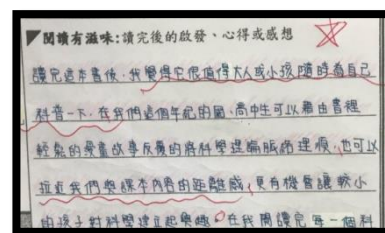 閱讀有滋味:讀完後的啟發、心得或感想
讀完這本書後，我覺得它很值得大人或小孩隨時為自己
科普一下，在我們這個年紀的國、高中生可以藉由書裡
輕鬆的漫畫故事反覆的將科學理論脈絡理順，也可以
拉近我們與課本內容的距離感，更有機會讓較小
的孩子對科學建立起興趣。在我閱讀完每一個科